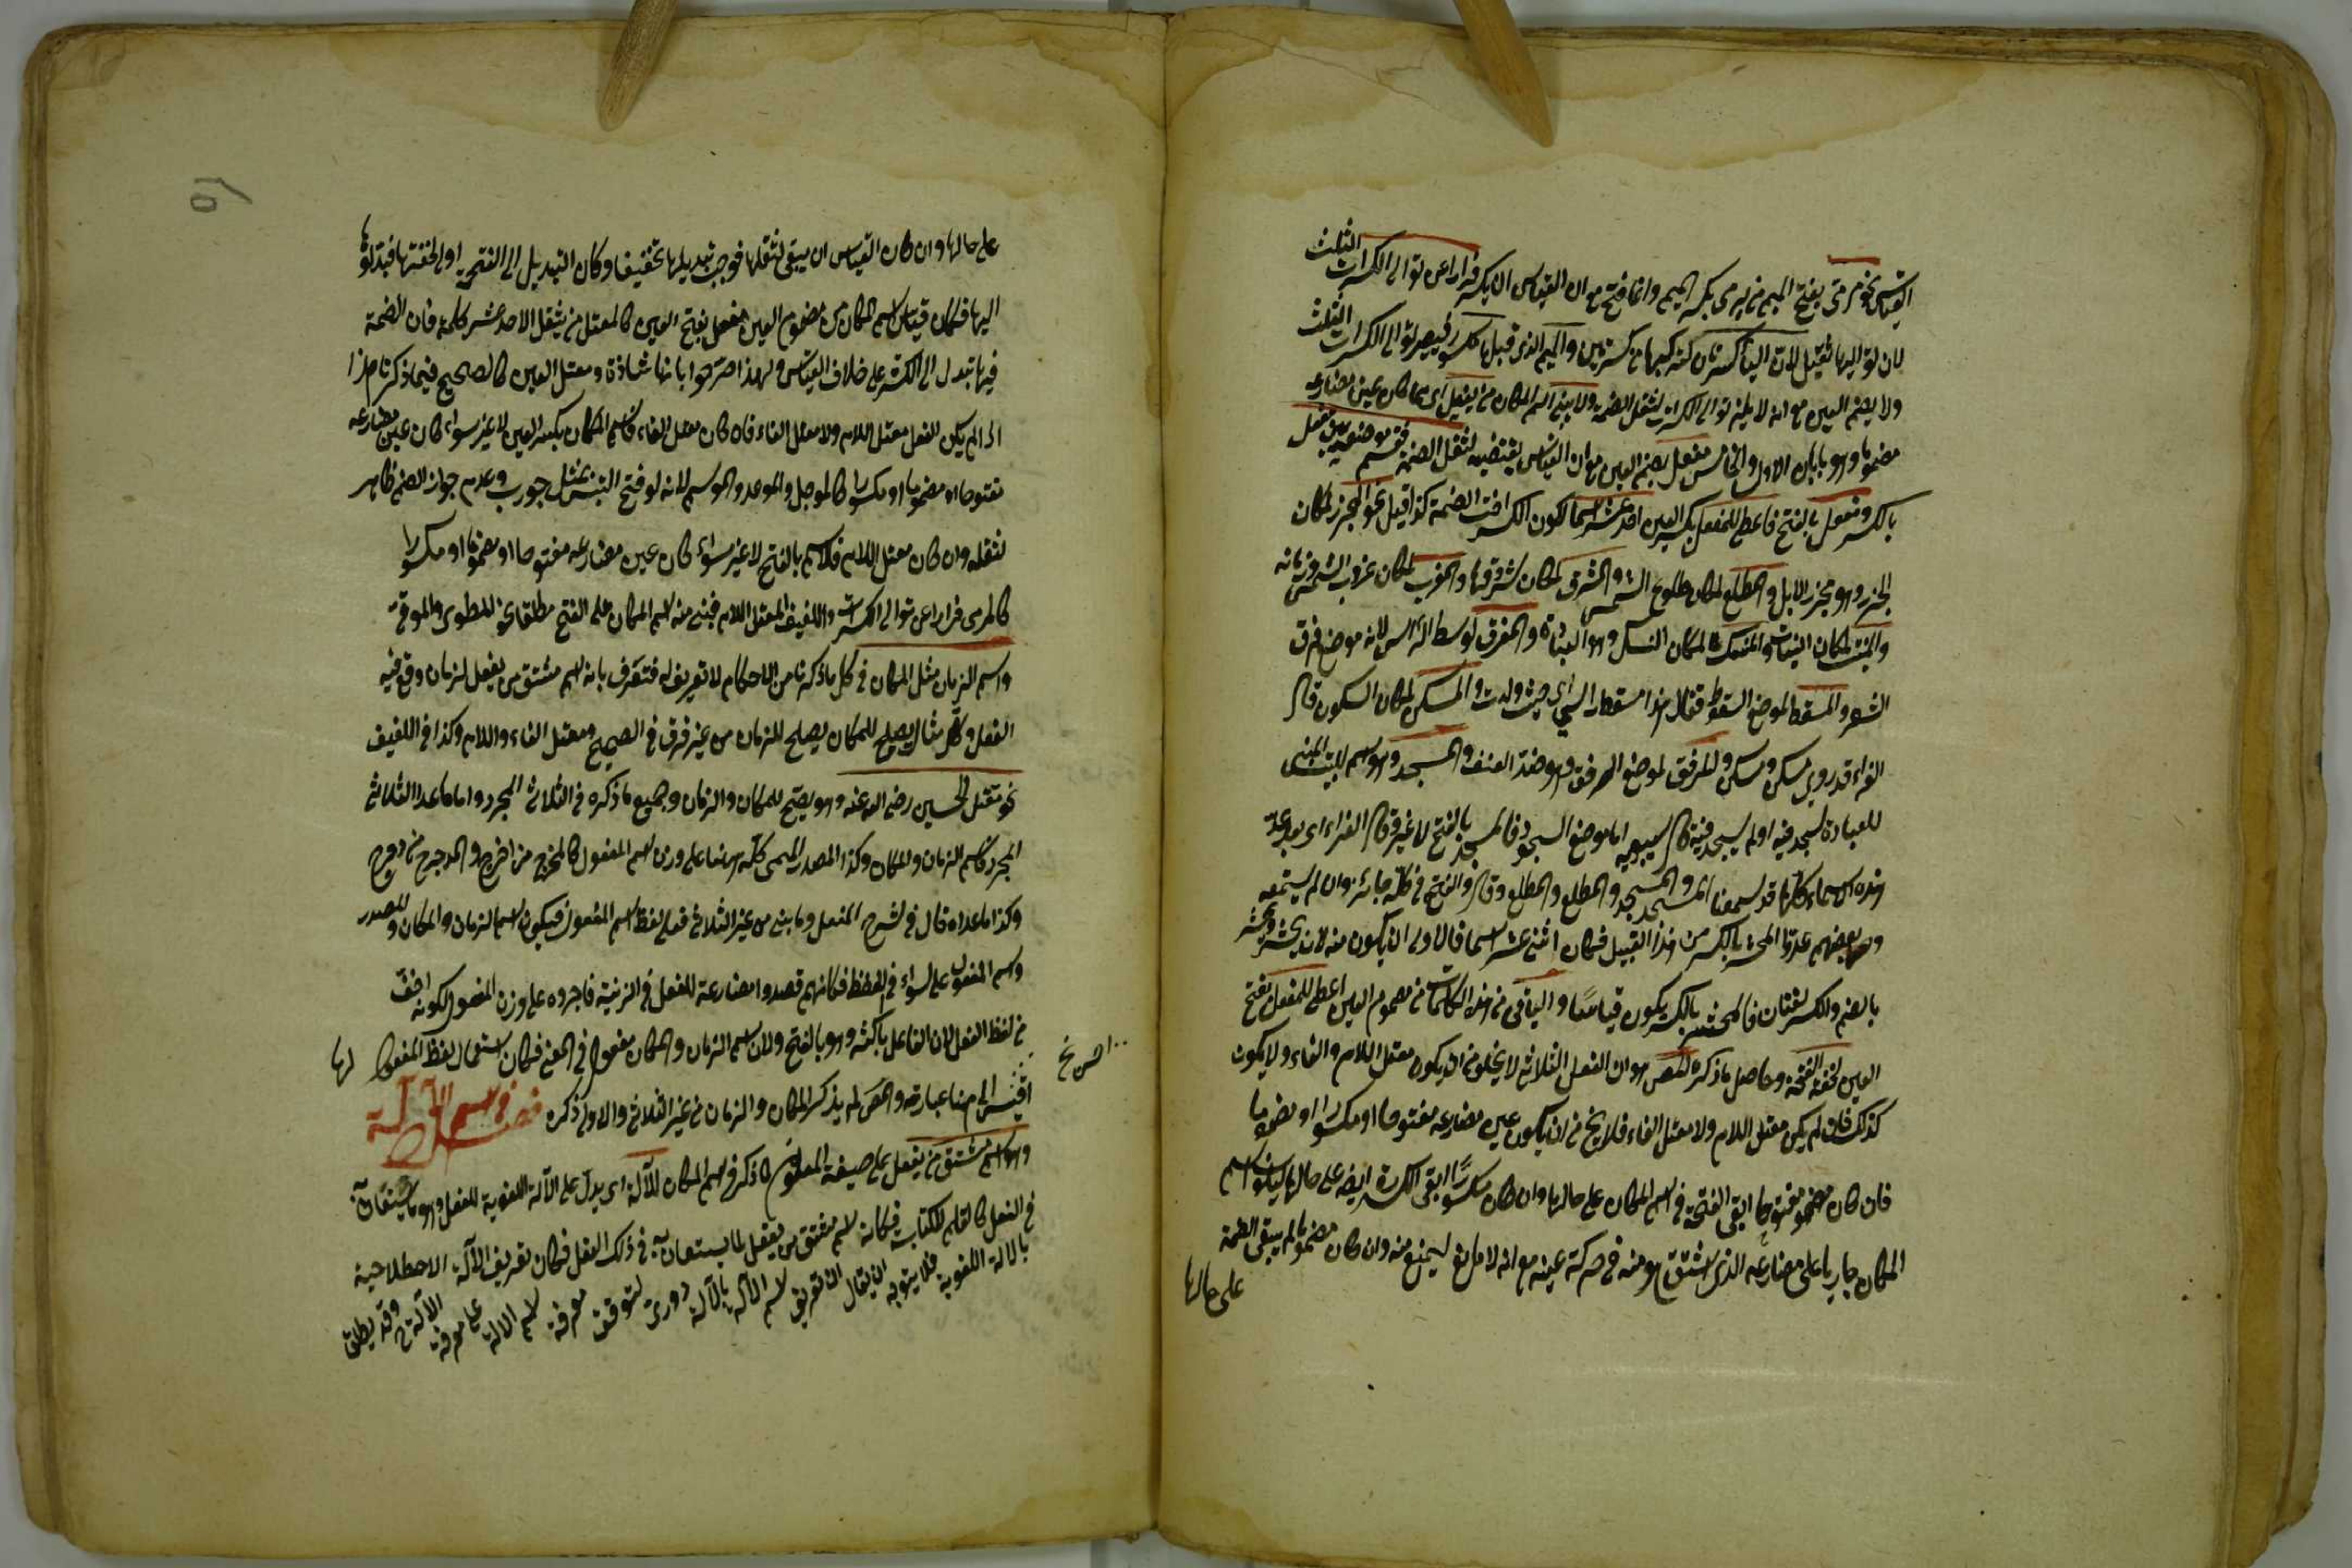 القياس نحو مرمى بفتح الميم من يرمى بكسر الميم وانما فتح مع ان القياس الكسر فرارا عن توالى الكسرات الثلث
لان توا ليها ثقيل لان اليا كسرتان كسر كها من كسرتين والميم الذى قبلها مكسور فيصير توالى الكسرات الثلث
ولا يضم العين مع انه لا يلزم توالى الكسرات لثقل الضمة ولا يبنى اسم المكان من يفعل اى مما كان عين مضارعه
مضموما وهو بابان الاول والخامس مفعل بضم العين مع ان القياس يقتضيه لثقل الضمة فقسم موضعه بين مفعل
بالكسر ومفعل بالفتح فاعطى للمفعل بكسر العين احد عشر اسما لكون الكسر اخت الضمة كذا قيل نحو المجزر لمكان
الجزر وهو مجزر الابل والمطلع لمكان طلوع الشمس والمشرق لمكان شروقها والمغرب لمكان غروب الشمس وزمانه
والمنبت لمكان النبات والمنسك لمكان النسك وهو العبادة والمفرق لوسط الرأس لانه موضع فرق
الشعر والمسقط لموضع السقوط يقال هذا مسقط رأسي اى حيث ولدت والمسكن لمكان السكون قال
الفراء قد روى مسكن ومسكن والمرفق لموضع الرفق وهو ضد العنف والمسجد وهو اسم للبيت المبنى
للعبادة سجد فيه او لم يسجد فيه قال سيبويه اما موضع السجود فالمسجد بالفتح لا غير قال الفراء اى بعد عد
هذه الاسماء كلها قد سمعنا المسجد والمسجد والمطلع والمطلع وقال والفتح فى كله جائز وان لم يستمعه
وبعضهم عدوا المحشر بالكسر من هذا القبيل فكان اثنى عشر اسما فالاولى ان يكون منه لان يحشر ويحشر
بالضم والكسر لغتان فالمحشر بالكسر يكون قياسا والباقى من هذه الكلمات من مضموم العين اعطى للمفعل بفتح
العين لخفة الفتحة وحاصل ما ذكره المصن هو ان الفعل الثلاثى لا يخلو من ان يكون معتل اللام والفاء ولا يكون
كذلك فان لم يكن معتل اللام ولا معتل الفاء فلا يخ من ان يكون عين مضارعه مفتوحا او مكسورا او مضموما
فان كان مفتوحا ابقى الفتحة فى اسم المكان على حالها وان كان مكسورا ابقى الكسرة ايضا على حالها ليكون اسم
المكان جاريا على مضارعه الذى اشتق هو منه فى حركة عينه مع انه لا مانع ليمنع منه وان كان مضموما لم يبق الضمة
على حالها
على حالها وان كان القياس ان يبقى لثقلها فوجب تبديلها تخفيفا وكان التبديل الى الفتحة اولى لخفتها فبدلوها
اليها فكان قياس اسم المكان من مضموم العين مفعل بفتح العين كالمعتل من يثقل الا احد عشر كلمة فان الضمة
فيها تبدل الى الكسر على خلاف القياس ولهذا صرحوا بانها شاذة ومعتل العين كالصحيح فيما ذكرنا هذا
اذا لم يكن الفعل معتل اللام ولا معتل الفاء فان كان معتل الفاء فاسم المكان بكسر العين لا غير سواء كان عين مضارعه
مفتوحا او مضموما او مكسورا كالموجل والموعد والموسم لانه لو فتح التبس بمثل جورب وعدم جواز الضم ظاهر
لثقله وان كان معتل اللام فالاسم بالفتح لا غير سواء كان عين مضارعه مفتوحا او مضموما او مكسورا
كالمرمى فرارا عن توالى الكسرات واللفيف كالمعتل اللام فيبنى منه اسم المكان على الفتح مطلقا نحو المطوى والموقى
واسم الزمان مثل المكان فى كل ما ذكرنا من الاحكام لا تعريف له فتعرف بانه اسم مشتق من يفعل لزمان وقع فيه
الفعل وكل مثال يصلح للمكان يصلح للزمان من غير فرق فى الصحيح ومعتل الفاء واللام وكذا فى اللفيف
نحو مقتل الحسين رضى الله عنه وهو يصلح للمكان والزمان وجميع ما ذكره فى الثلاثى المجرد واما ما عدا الثلاثى
المجرد فاسم الزمان والمكان وكذا المصدر الميمى كله منها على وزن اسم المفعول كالمخرج من اخرج والمدحرج من دحرج
وكذا ما عداه قال فى شرح المفصل وما بنى من غير الثلاثى فعلى لفظ اسم المفعول فيكون اسم الزمان والمكان والمصدر
واسم المفعول على السواء فى اللفظ فكانهم قصدوا مضارعة للفعل فى الزنة فاجروه على وزن المفعول لكونه اخف
من لفظ الفعل لان الفاعل بالكسر وهو بالفتح ولان اسم الزمان والمكان مفعول فى المعنى فكان استعمال لفظ المفعول لها
اقيس الى هنا عبارته والمص لم يذكر المكان والزمان من غير الثلاثى والاولى ذكره فصل فى اسم الآلة
وهو اسم مشتق من يفعل على صيغة المعلوم كما ذكر فى اسم المكان للآلة اى يدل على الآلة اللغوية للفعل وهو ما يستعان به
فى الفعل كالقلم للكتابة فكانه اسم مشتق من يفعل لما يستعان به فى ذلك الفعل فكان تعريف الآلة الاصطلاحية
بالالة اللغوية فلا يتوجه ان يقال ان تعريف اسم الآلة بالآلة دورى لتوقف معرفة اسم الالة على معرفة الآلة وقد يطلق